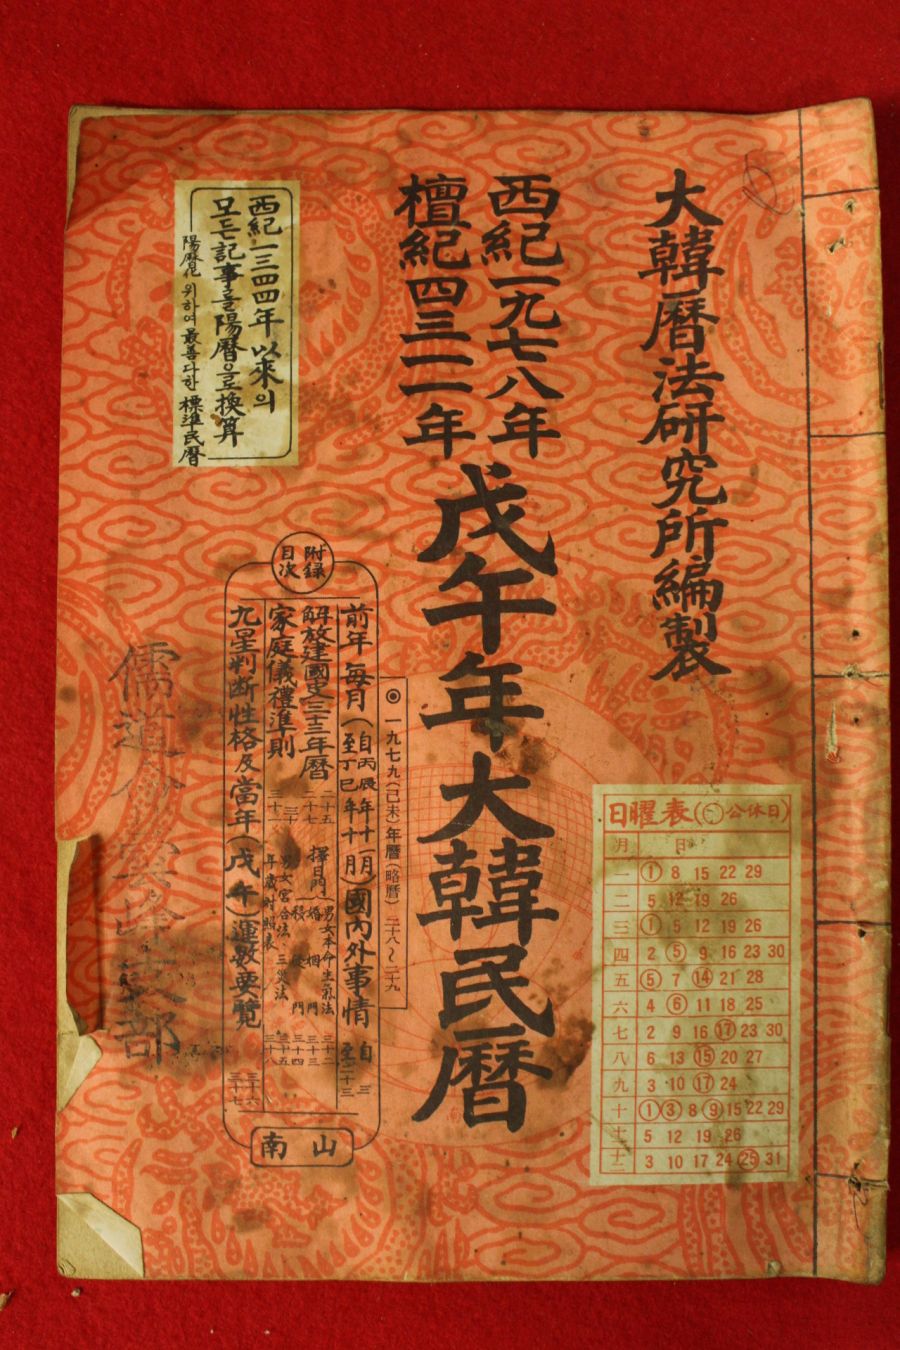 大韓曆法研究所編製
西紀一九七八年
檀紀四三一一年
戊午年大韓民曆
西紀一三四四年以來의
모든記事를陽曆으로換算
陽曆化위하여最善다한標準民曆
日曜表(○公休日)
月 日
一 1 8 15 22 29
二 5 12 19 26
三 1 5 12 19 26
四 2 5 9 16 23 30
五 5 7 14 21 28
六 4 6 11 18 25
七 2 9 16 17 23 30
八 6 13 15 20 27
九 3 10 17 24
十 1 3 8 9 15 22 29
十一 5 12 19 26
十二 3 10 17 24 25 31
◉ 一九七九(己未)年曆(略曆) 二八~二九
附錄
目次
前年每月(自丙辰年十一月 至丁巳年十月)國內外事情
解放建國史三十三年曆
家庭儀禮準則
擇日門
婚姻門
移
門
男女本命生氣法
男女宮合法、三災法
年歲對照表
九星判断性格及當年(戊午)運数要覽
南山
儒道
部